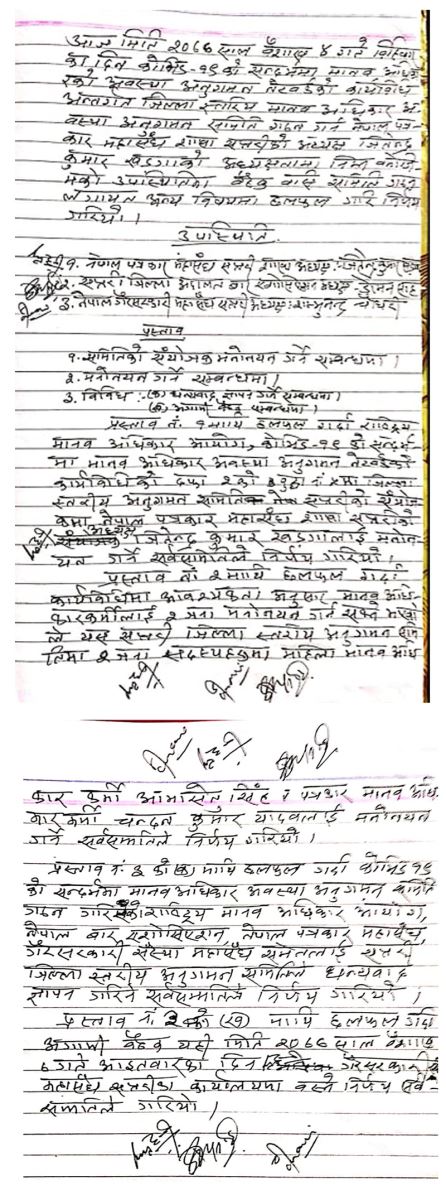 आज मिति २०७७ साल बैशाख ४ गते बिहिबार
का दिन कोभिड-१९ को सन्दर्भमा मानव अधिकार
को अवस्था अनुगमन नेटवर्कको कार्यविधि
अन्तर्गत जिल्ला स्तरिय मानव अधिकार अ-
वस्था अनुगमन समिति गठन गर्न नेपाल पत्र-
कार महासंघ शाखा सप्तरीको अध्यक्ष जितेन्द्र
कुमार खड्गाको अध्यक्षतामा निम्न बमोजि
मको उपस्थितिमा बैठक बसि समिति गठन
लगायत अन्य विषयमा छलफल गरि निर्णय
गरियो ।
उपस्थिति
१. नेपाल पत्रकार महासंघ सप्तरी शाखा अध्यक्ष: जितेन्द्र कुमार खड्गा
२. सप्तरी जिल्ला अदालत बार एशोसिएशन अध्यक्ष
३. नेपाल गैरसरकारी महासंघ सप्तरी अध्यक्ष: चौधरी
प्रस्ताव
१. समितिको संयोजक मनोनयन गर्ने सम्बन्धमा ।
२. मनोनयन गर्ने सम्बन्धमा ।
३. विविध : (क) धन्यवाद ज्ञापन गर्ने सम्बन्धमा ।
(ख) आगामी बैठक सम्बन्धमा ।
प्रस्ताव नं. १ माथि छलफल गर्दा राष्ट्रिय
मानव अधिकार आयोग, कोभिड-१९ को सन्दर्भ-
मा मानव अधिकार अवस्था अनुगमन नेटवर्कको
कार्यविधिको दफा २ को बुँदा नं मा जिल्ला
स्तरीय अनुगमन समिति सप्तरीको संयोज
कमा नेपाल पत्रकार महासंघ शाखा सप्तरीको
अध्यक्ष
जितेन्द्र कुमार खड्गालाई मनोन-
यन गर्ने सर्वसम्मतिले निर्णय गरियो ।
प्रस्ताव नं २ माथि छलफल गर्दा
कार्यविधिमा आवश्यकता अनुसार मानव अधि-
कारकर्मीलाई २ जना मनोनयन गर्न सक्ने भएको
ले यस सप्तरी जिल्ला स्तरीय अनुगमन समि
तिमा २ जना सदस्यहरुमा महिला मानव अधि
कार कर्मी आभासेतु सिंह र पत्रकार मानव अधि
कार कर्मी चन्दन कुमार यादवलाई मनोनयन
गर्ने सर्वसम्मतिले निर्णय गरियो ।
प्रस्ताव नं. ३ को क माथि छलफल गर्दा कोभिड १९
को सन्दर्भमा मानव अधिकार अवस्था अनुगमन
गठन गरि राष्ट्रिय मानव अधिकार आयोग,
नेपाल बार एशोसिएशन, नेपाल पत्रकार महासंघ,
गैरसरकारी संस्था महासंघ समेतलाई सप्तरी
जिल्ला स्तरीय अनुगमन समितिले धन्यवाद
ज्ञापन गरिने सर्वसम्मतिले निर्णय गरियो ।
प्रस्ताव नं. ३ को (ख) माथि छलफल गर्दा
आगामी बैठक यही मिति २०७७ साल बैशाख
७ गते आइतबारका दिन गैरसरकारी
महासंघ सप्तरीको कार्यालयमा बस्ने निर्णय सर्व-
सम्मतिले गरियो ।